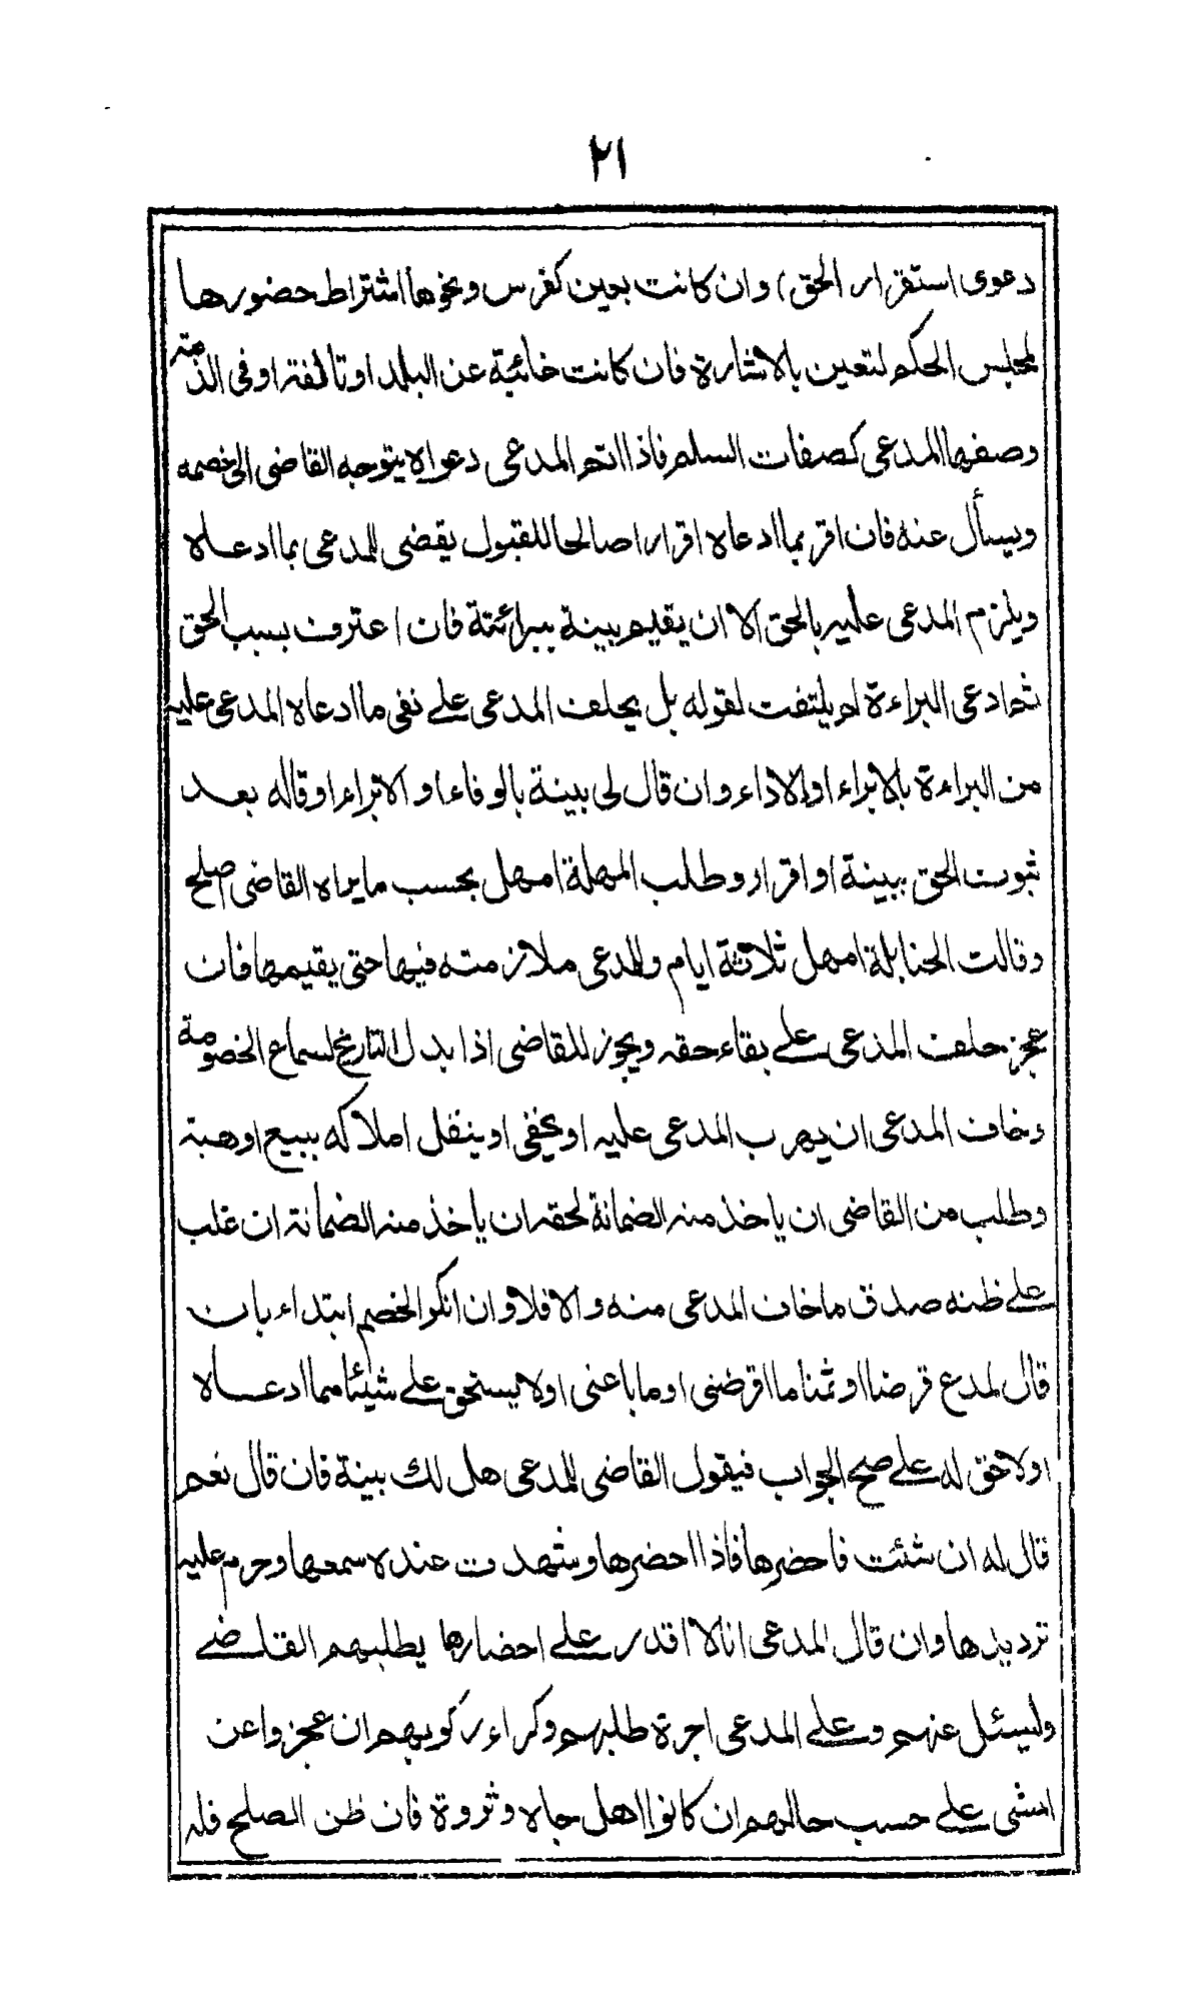 ٢١
دعوى استقرار الحق) وان كانت بعين كفرس ونحوها اشتراط حضورها
لمجلس الحكم لتعين بالاشارة فان كانت غائبة عن البلد او تالفة او في الذمة
وصفها المدعي كصفات السلم فاذا اتم المدعي دعواه يتوجه القاضي الى خصمه
ويسأل عنه فان اقر بما ادعاه اقرارا صالحا للقبول يقضى للمدعي بما ادعاه
ويلزم المدعى عليه بالحق الا ان يقيم بينة ببرائته فان اعترف بسبب الحق
ثم ادعى البراءة لم يلتفت لقوله بل يحلف المدعي على نفي ما ادعاه المدعى عليه
من البراءة بالابراء او الاداء وان قال لي بينة بالوفاء او الابراء او قاله بعد
ثبوت الحق ببينة او اقرار وطلب المهلة امهل بحسب مايراه القاضي اصلح
وقالت الحنابلة امهل ثلاثة ايام وللمدعي ملازمته فيها حتى يقيمها فان
عجز حلف المدعي على بقاء حقه ويجوز للقاضي اذا بدل التاريخ لسماع الخصومة
وخاف المدعي ان يهرب المدعى عليه او يخفي او ينقل املاكه ببيع او هبة
وطلب من القاضي ان ياخذ منه الضمانة لحقه ان ياخذ منه الضمانة ان غلب
على ظنه صدق ماخاف المدعي منه والا فلا وان انكر الخصم ابتداء بان
قال لمدع قرضا او ثمنا ما اقرضني او ما باعني اولا يستحق على شيئا مما ادعاه
اولا حق له على صح الجواب فيقول القاضي للمدعي هل لك بينة فان قال نعم
قال له ان شئت فاحضرها فاذا احضرها وشهدت عنده سمعها وحرم عليه
ترديدها وان قال المدعي انا لا اقدر على احضارها يطلبهم القاضے
وليسئل عنهم وعلى المدعي اجرة طلبهم وكراء ركوبهم ان عجزوا عن
المشي على حسب حالهم ان كانوا اهل جاه وثروة فان ظن الصلح فله